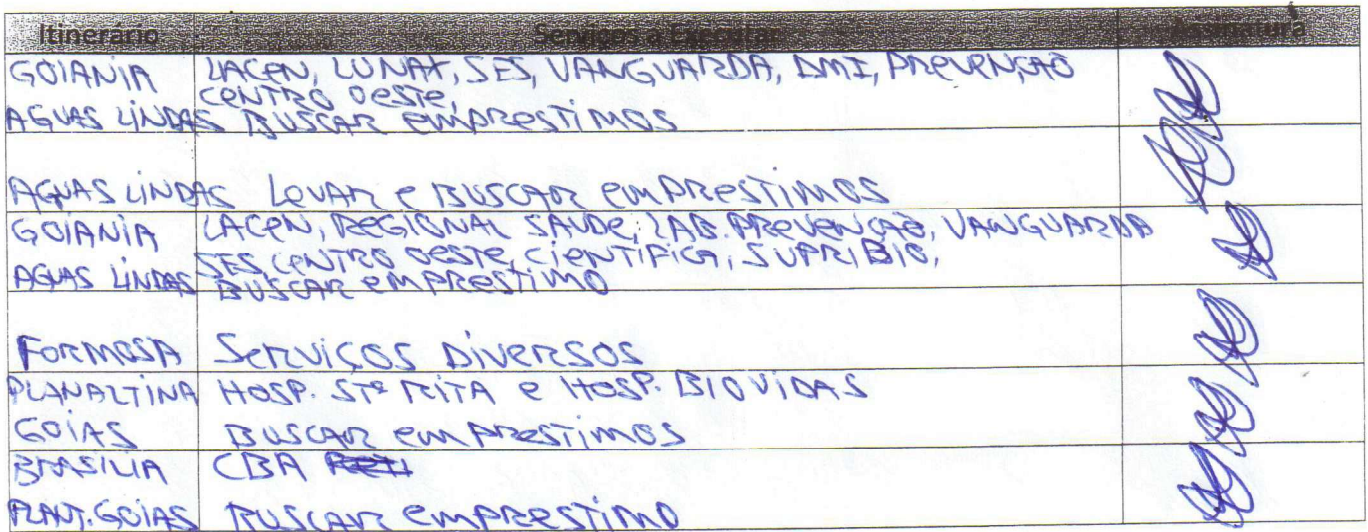 Itinerário Serviços a Executar Assinatura
GOIANIA LACEN, LUNAX, SES, VANGUARDA, DMI, PREVENÇÃO
CENTRO OESTE,
AGUAS LINDAS BUSCAR EMPRESTIMOS
AGUAS LINDAS LEVAR E BUSCAR EMPRESTIMOS
GOIANIA LACEN, REGIONAL SAUDE, LAB. PREVENÇÃO, VANGUARDA
SES, CENTRO OESTE, CIENTIFICA, SUPRIBIO,
AGUAS LINDAS BUSCAR EMPRESTIMO
FORMOSA SERVIÇOS DIVERSOS
PLANALTINA HOSP. STª RITA E HOSP. BIOVIDAS
GOIAS BUSCAR EMPRESTIMOS
BRASILIA CBA
PLANT. GOIAS BUSCAR EMPRESTIMO